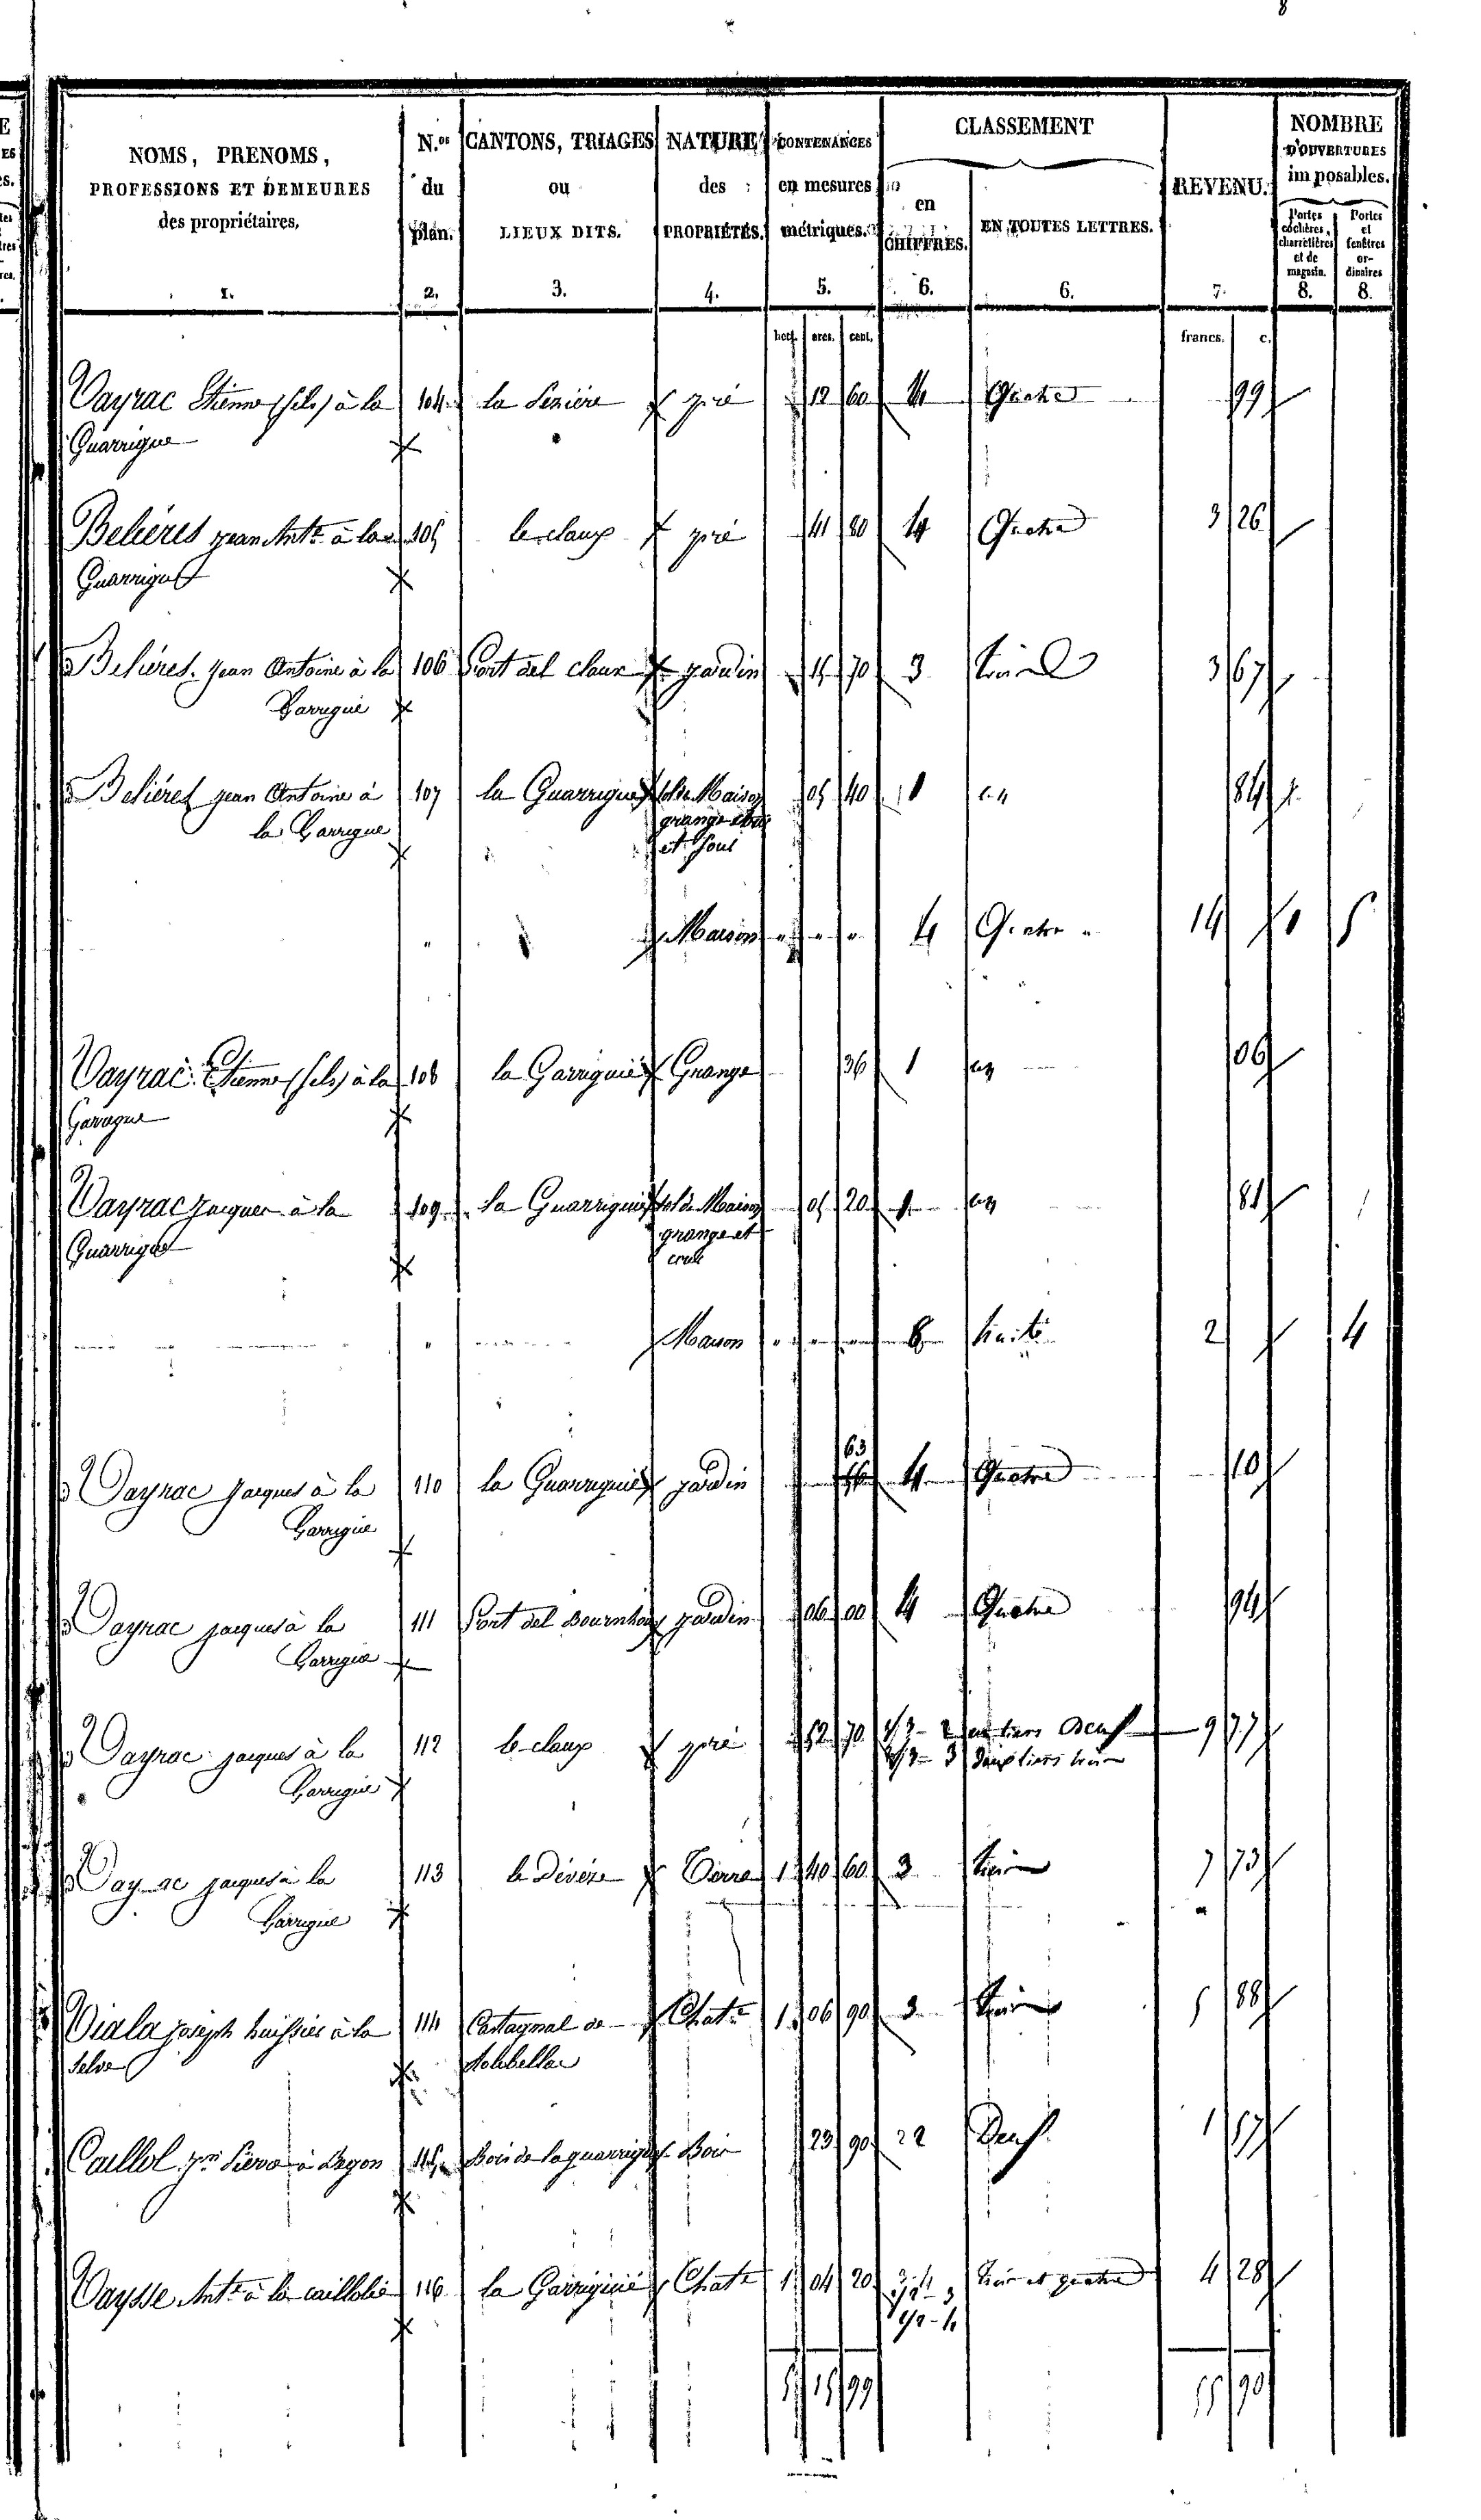 8
NOMS, PRENOMS,
PROFESSIONS ET DEMEURES
des propriétaires,
1.
N.os
du
plan.
2.
CANTONS, TRIAGES
ou
LIEUX DITS.
3.
NATURE
des
PROPRIÉTÉS.
4.
CONTENANCES
en mesures
métriques.
5.
CLASSEMENT
en
CHIFFRES.
6.
EN TOUTES LETTRES.
6.
REVENU.
7.
NOMBRE
D'OUVERTURES
imposables.
Portes
cochères,
charretières
et de
magasin.
8.
Portes
et
fenêtres
or-
dinaires
8.
hect. ares. cent. francs. c.
Vayrac Etienne (fils) à la 104 la Sezière pré 12 60 4 Quatre 99
Guarrigue
Belières jean Ante à la 105 le claux pré 41 80 4 Quatre 3 26
Guarrigue
Belières jean Antoine à la 106 l'ort del claux jardin 15 70 3 trois 3 67
Garrigue
Belières jean Antoine à 107 la Guarrigue sol de Maison 05 40 1 84
la Garrigue grange
et four
" Maison " " " 4 Quatre 14 5
Vayrac Etienne (fils) à la 108 la Garrigue Grange 36 1 06
Garrigue
Vayrac jacques à la 109 la Guarrigue sol de Maison 05 20 1 81
Guarrigue grange et
" Maison " " " 8 huit 2 4
63
Vayrac jacques à la 110 la Guarrigue jardin 4 Quatre 10
Garrigue
Vayrac jacques à la 111 l'ort del jardin 06 00 4 Quatre 94
Garrigue
Vayrac jacques à la 112 le claux pré 52 70 1/3 - 2 un tiers Deux 9 77
Garrigue 2/3 - 3 deux tiers trois
Vayrac jacques à la 113 le Dévèze Terre 1 40 60 3 trois 7 73
Garrigue
Viala joseph huissier à la 114 Castagnal de Chate 1 06 90 3 trois 5 88
Selve
Caillol Pierre à 115 Bois de la guarrigue Bois 23 90 2 Deux 1 57
Vaysse Ante à la 116 la Garrigue Chate 1 04 20 3.4 trois et quatre 4 28
1/2 - 3
1/2 - 4
5 15 99 55 90